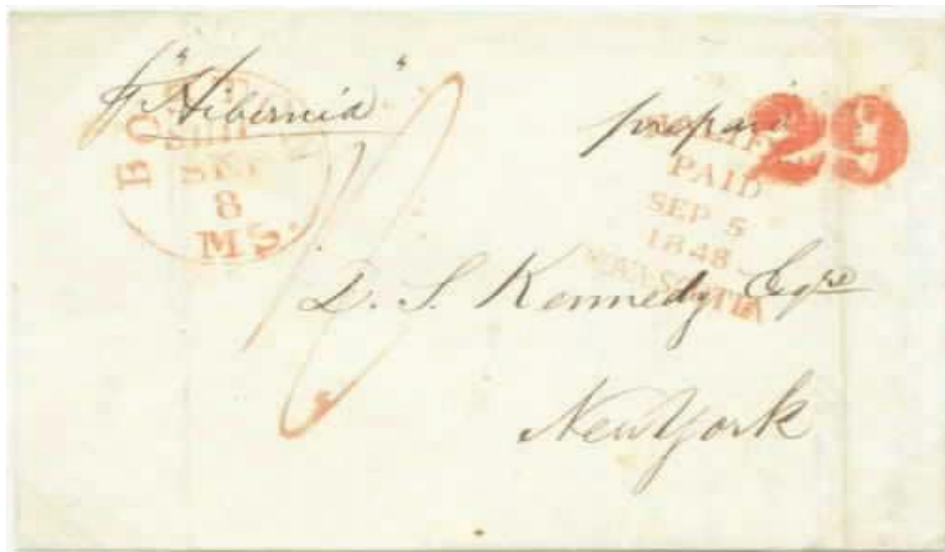 pr "Hibernia"
BOSTON
SHIP
SEP
8
MS.
prepaid
29
HALIFAX
PAID
SEP 5
1848
NOVA SCOTIA
D. S. Kennedy Esqre
New York